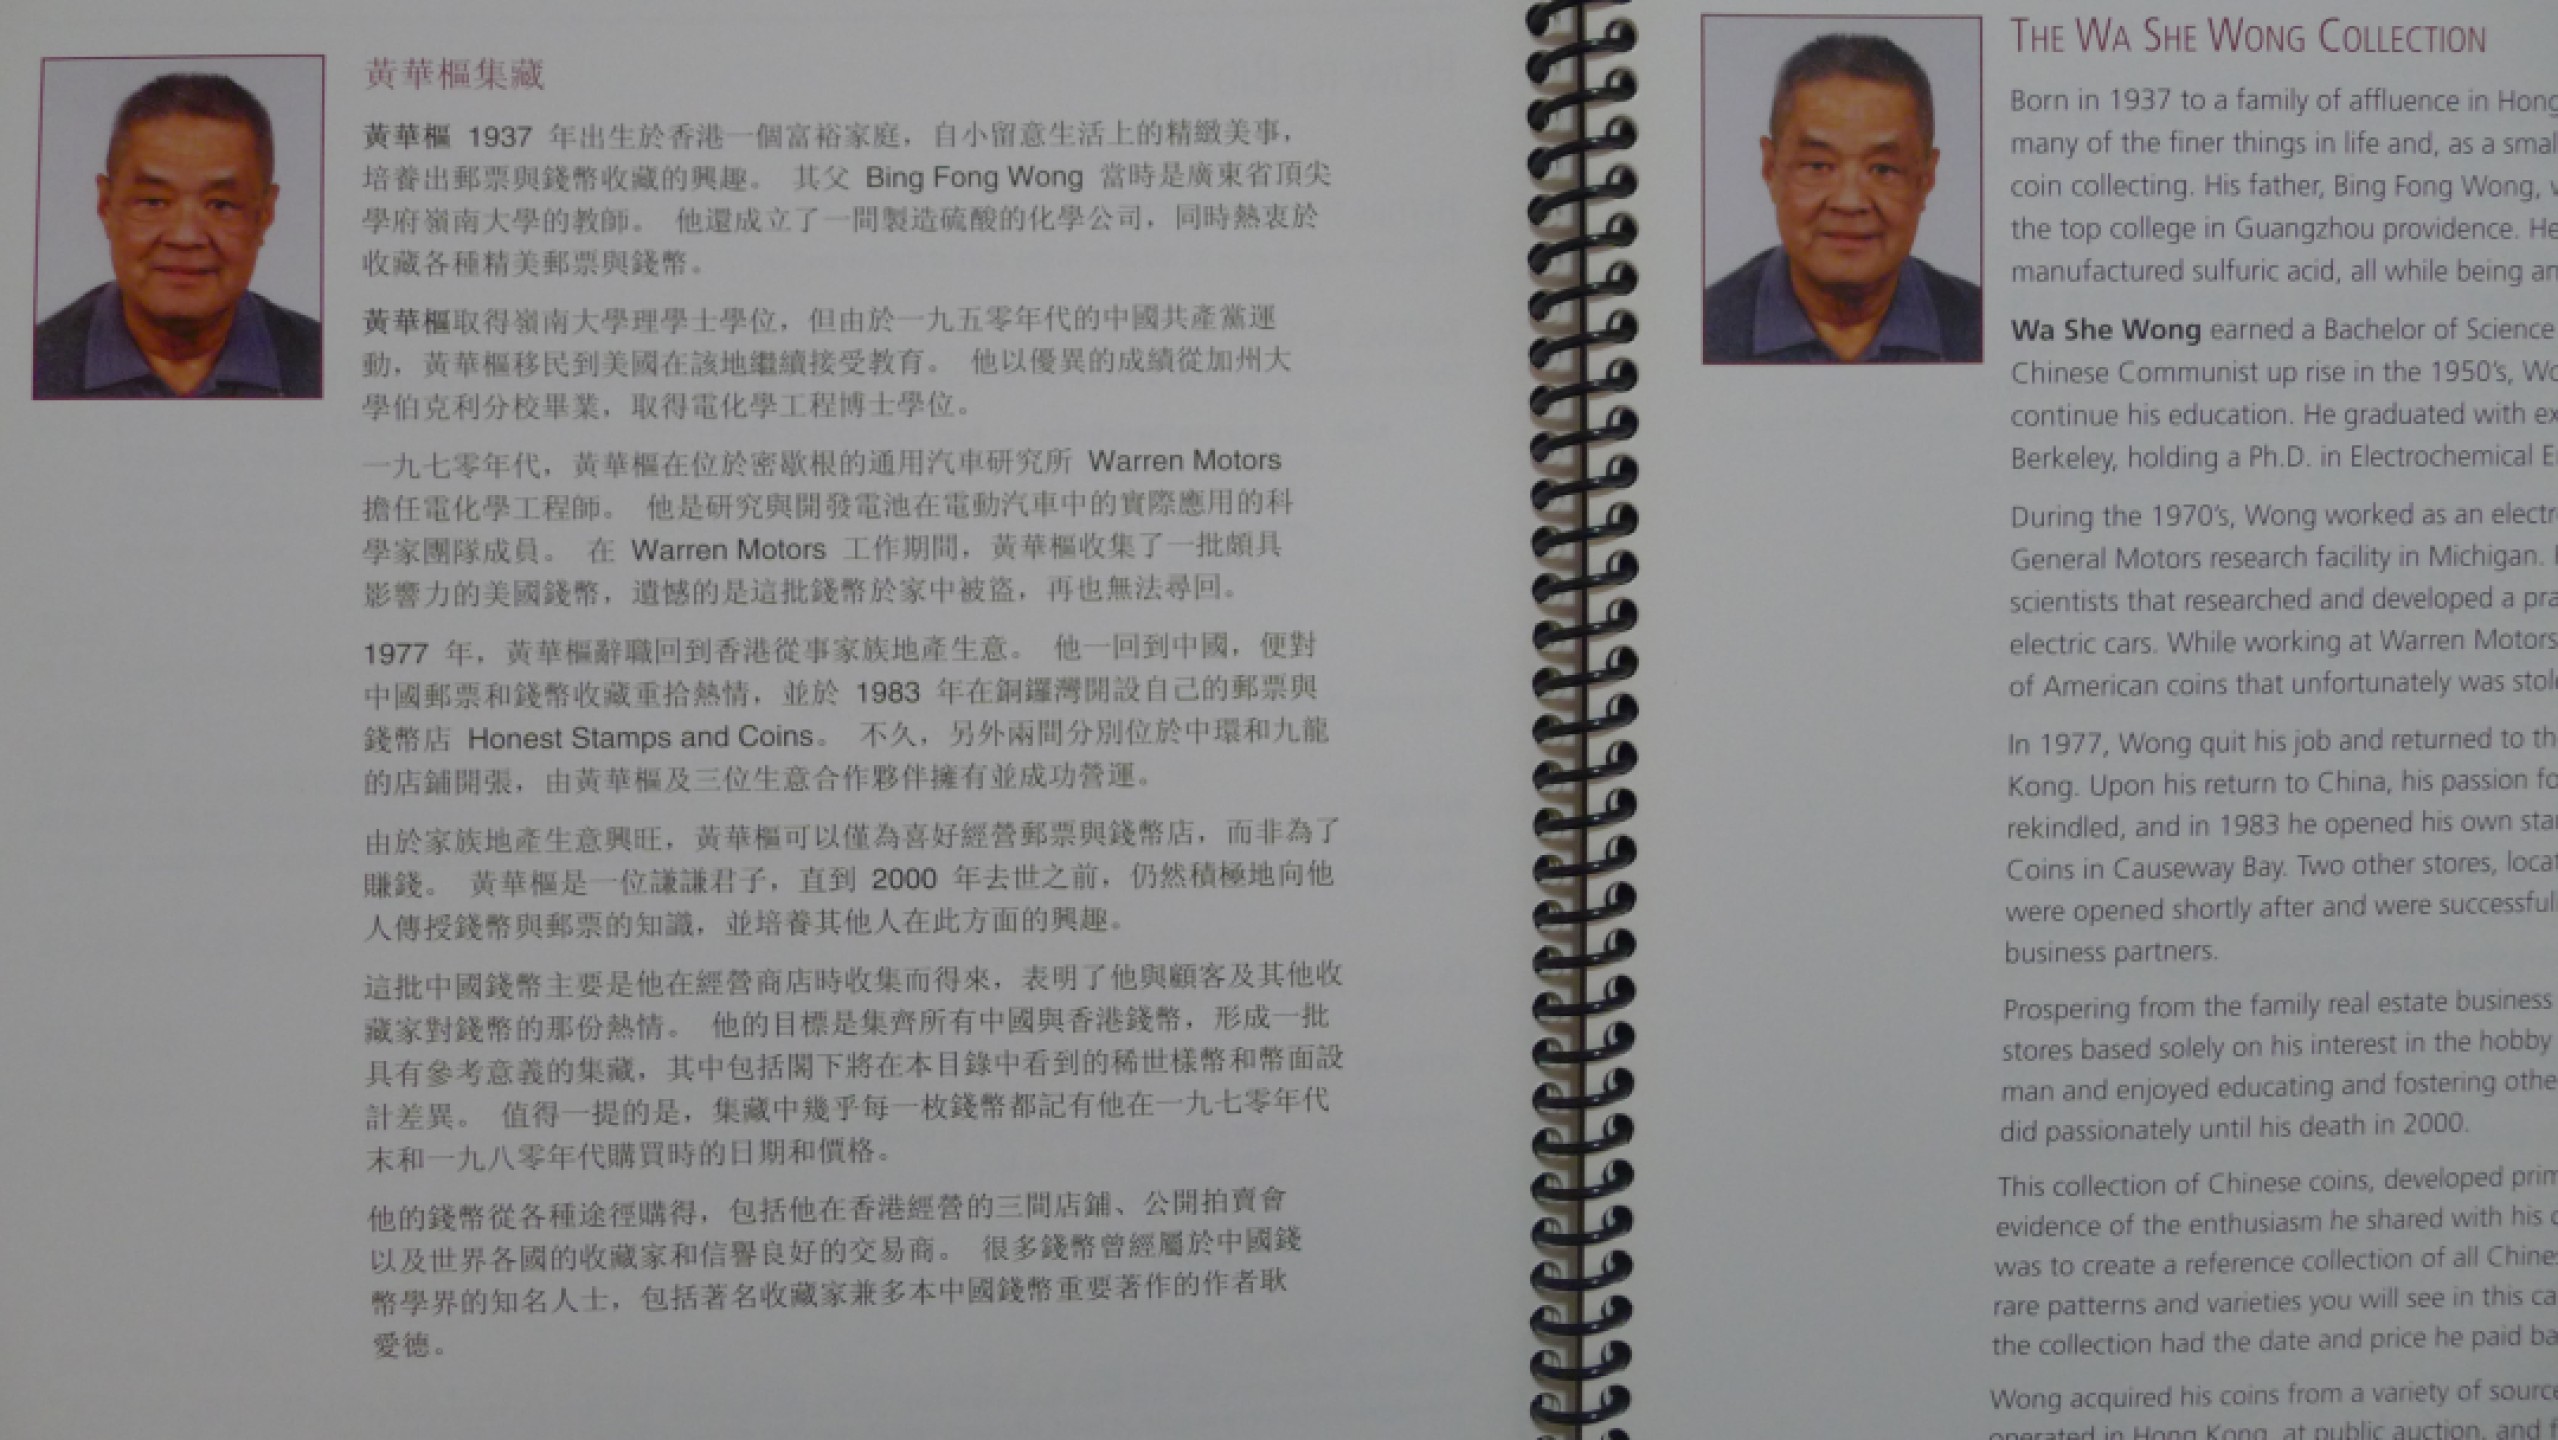 黃華樞集藏
黃華樞 1937 年出生於香港一個富裕家庭，自小留意生活上的精緻美事，
培養出郵票與錢幣收藏的興趣。 其父 Bing Fong Wong 當時是廣東省頂尖
學府嶺南大學的教師。 他還成立了一間製造硫酸的化學公司，同時熱衷於
收藏各種精美郵票與錢幣。
黃華樞取得嶺南大學理學士學位，但由於一九五零年代的中國共產黨運
動，黃華樞移民到美國在該地繼續接受教育。 他以優異的成績從加州大
學伯克利分校畢業，取得電化學工程博士學位。
一九七零年代，黃華樞在位於密歇根的通用汽車研究所 Warren Motors
擔任電化學工程師。 他是研究與開發電池在電動汽車中的實際應用的科
學家團隊成員。 在 Warren Motors 工作期間，黃華樞收集了一批頗具
影響力的美國錢幣，遺憾的是這批錢幣於家中被盜，再也無法尋回。
1977 年，黃華樞辭職回到香港從事家族地產生意。 他一回到中國，便對
中國郵票和錢幣收藏重拾熱情，並於 1983 年在銅鑼灣開設自己的郵票與
錢幣店 Honest Stamps and Coins。 不久，另外兩間分別位於中環和九龍
的店鋪開張，由黃華樞及三位生意合作夥伴擁有並成功營運。
由於家族地產生意興旺，黃華樞可以僅為喜好經營郵票與錢幣店，而非為了
賺錢。 黃華樞是一位謙謙君子，直到 2000 年去世之前，仍然積極地向他
人傳授錢幣與郵票的知識，並培養其他人在此方面的興趣。
這批中國錢幣主要是他在經營商店時收集而得來，表明了他與顧客及其他收
藏家對錢幣的那份熱情。 他的目標是集齊所有中國與香港錢幣，形成一批
具有參考意義的集藏，其中包括閣下將在本目錄中看到的稀世樣幣和幣面設
計差異。 值得一提的是，集藏中幾乎每一枚錢幣都記有他在一九七零年代
末和一九八零年代購買時的日期和價格。
他的錢幣從各種途徑購得，包括他在香港經營的三間店鋪、公開拍賣會
以及世界各國的收藏家和信譽良好的交易商。 很多錢幣曾經屬於中國錢
幣學界的知名人士，包括著名收藏家兼多本中國錢幣重要著作的作者耿
愛德。
THE WA SHE WONG COLLECTION
Born in 1937 to a family of affluence in Hong
many of the finer things in life and, as a smal
coin collecting. His father, Bing Fong Wong, w
the top college in Guangzhou providence. He
manufactured sulfuric acid, all while being an
Wa She Wong earned a Bachelor of Science
Chinese Communist up rise in the 1950's, Wo
continue his education. He graduated with ex
Berkeley, holding a Ph.D. in Electrochemical E
During the 1970's, Wong worked as an electr
General Motors research facility in Michigan.
scientists that researched and developed a pra
electric cars. While working at Warren Motors
of American coins that unfortunately was stol
In 1977, Wong quit his job and returned to th
Kong. Upon his return to China, his passion fo
rekindled, and in 1983 he opened his own sta
Coins in Causeway Bay. Two other stores, locat
were opened shortly after and were successful
business partners.
Prospering from the family real estate business
stores based solely on his interest in the hobby
man and enjoyed educating and fostering othe
did passionately until his death in 2000.
This collection of Chinese coins, developed prim
evidence of the enthusiasm he shared with his c
was to create a reference collection of all Chine
rare patterns and varieties you will see in this ca
the collection had the date and price he paid ba
Wong acquired his coins from a variety of source
operated in Hong Kong, at public auction, and f